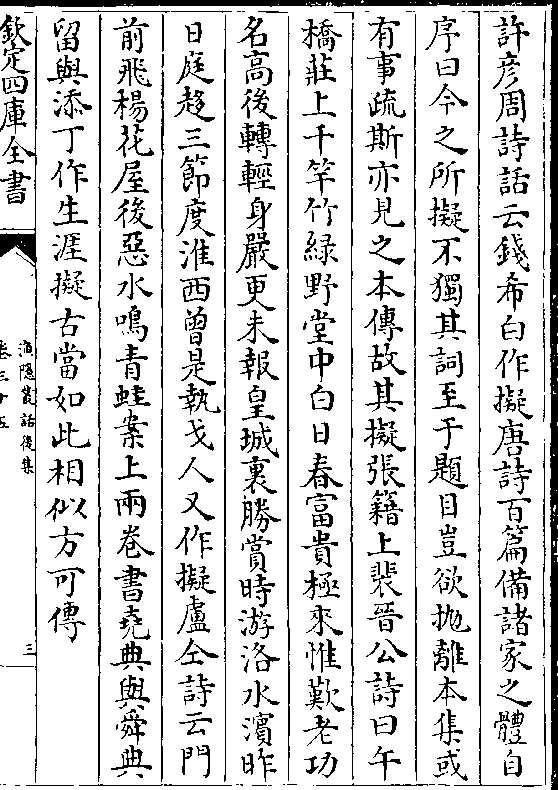 許彦周詩話云錢希白作擬唐詩百篇備諸家之體自
序曰今之所擬不獨其詞至于題目豈欲拋離本集或
有事疏斯亦見之本傳故其擬張籍上裴晉公詩曰午
橋莊上千竿竹緑野堂中白日春富貴極來惟歎老功
名高後轉輕身嚴更未報皇城裏勝賞時游洛水濱昨
日庭趍三節度淮西曽是執戈人又作擬盧仝詩云門
前飛楊花屋後惡水鳴青蛙案上兩卷書堯典與舜典
留與添丁作生涯擬古當如此相似方可傳
欽定四庫全書
漁隠叢話後集
卷三十五
三